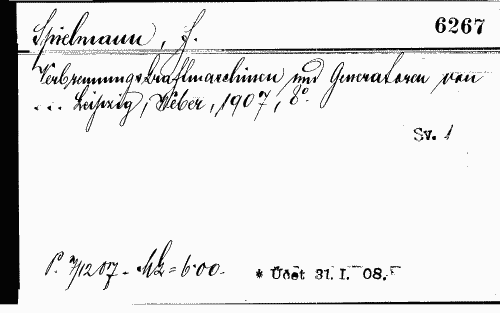 6267
Spielmann, J.
Verbrennungskraftmaschinen und Generatoren von
... Leipzig, Weber, 1907, 8°.
Sv. 1
P. 7/12 07 - Mk = 6·00 -
* Účet 31. I. 08.